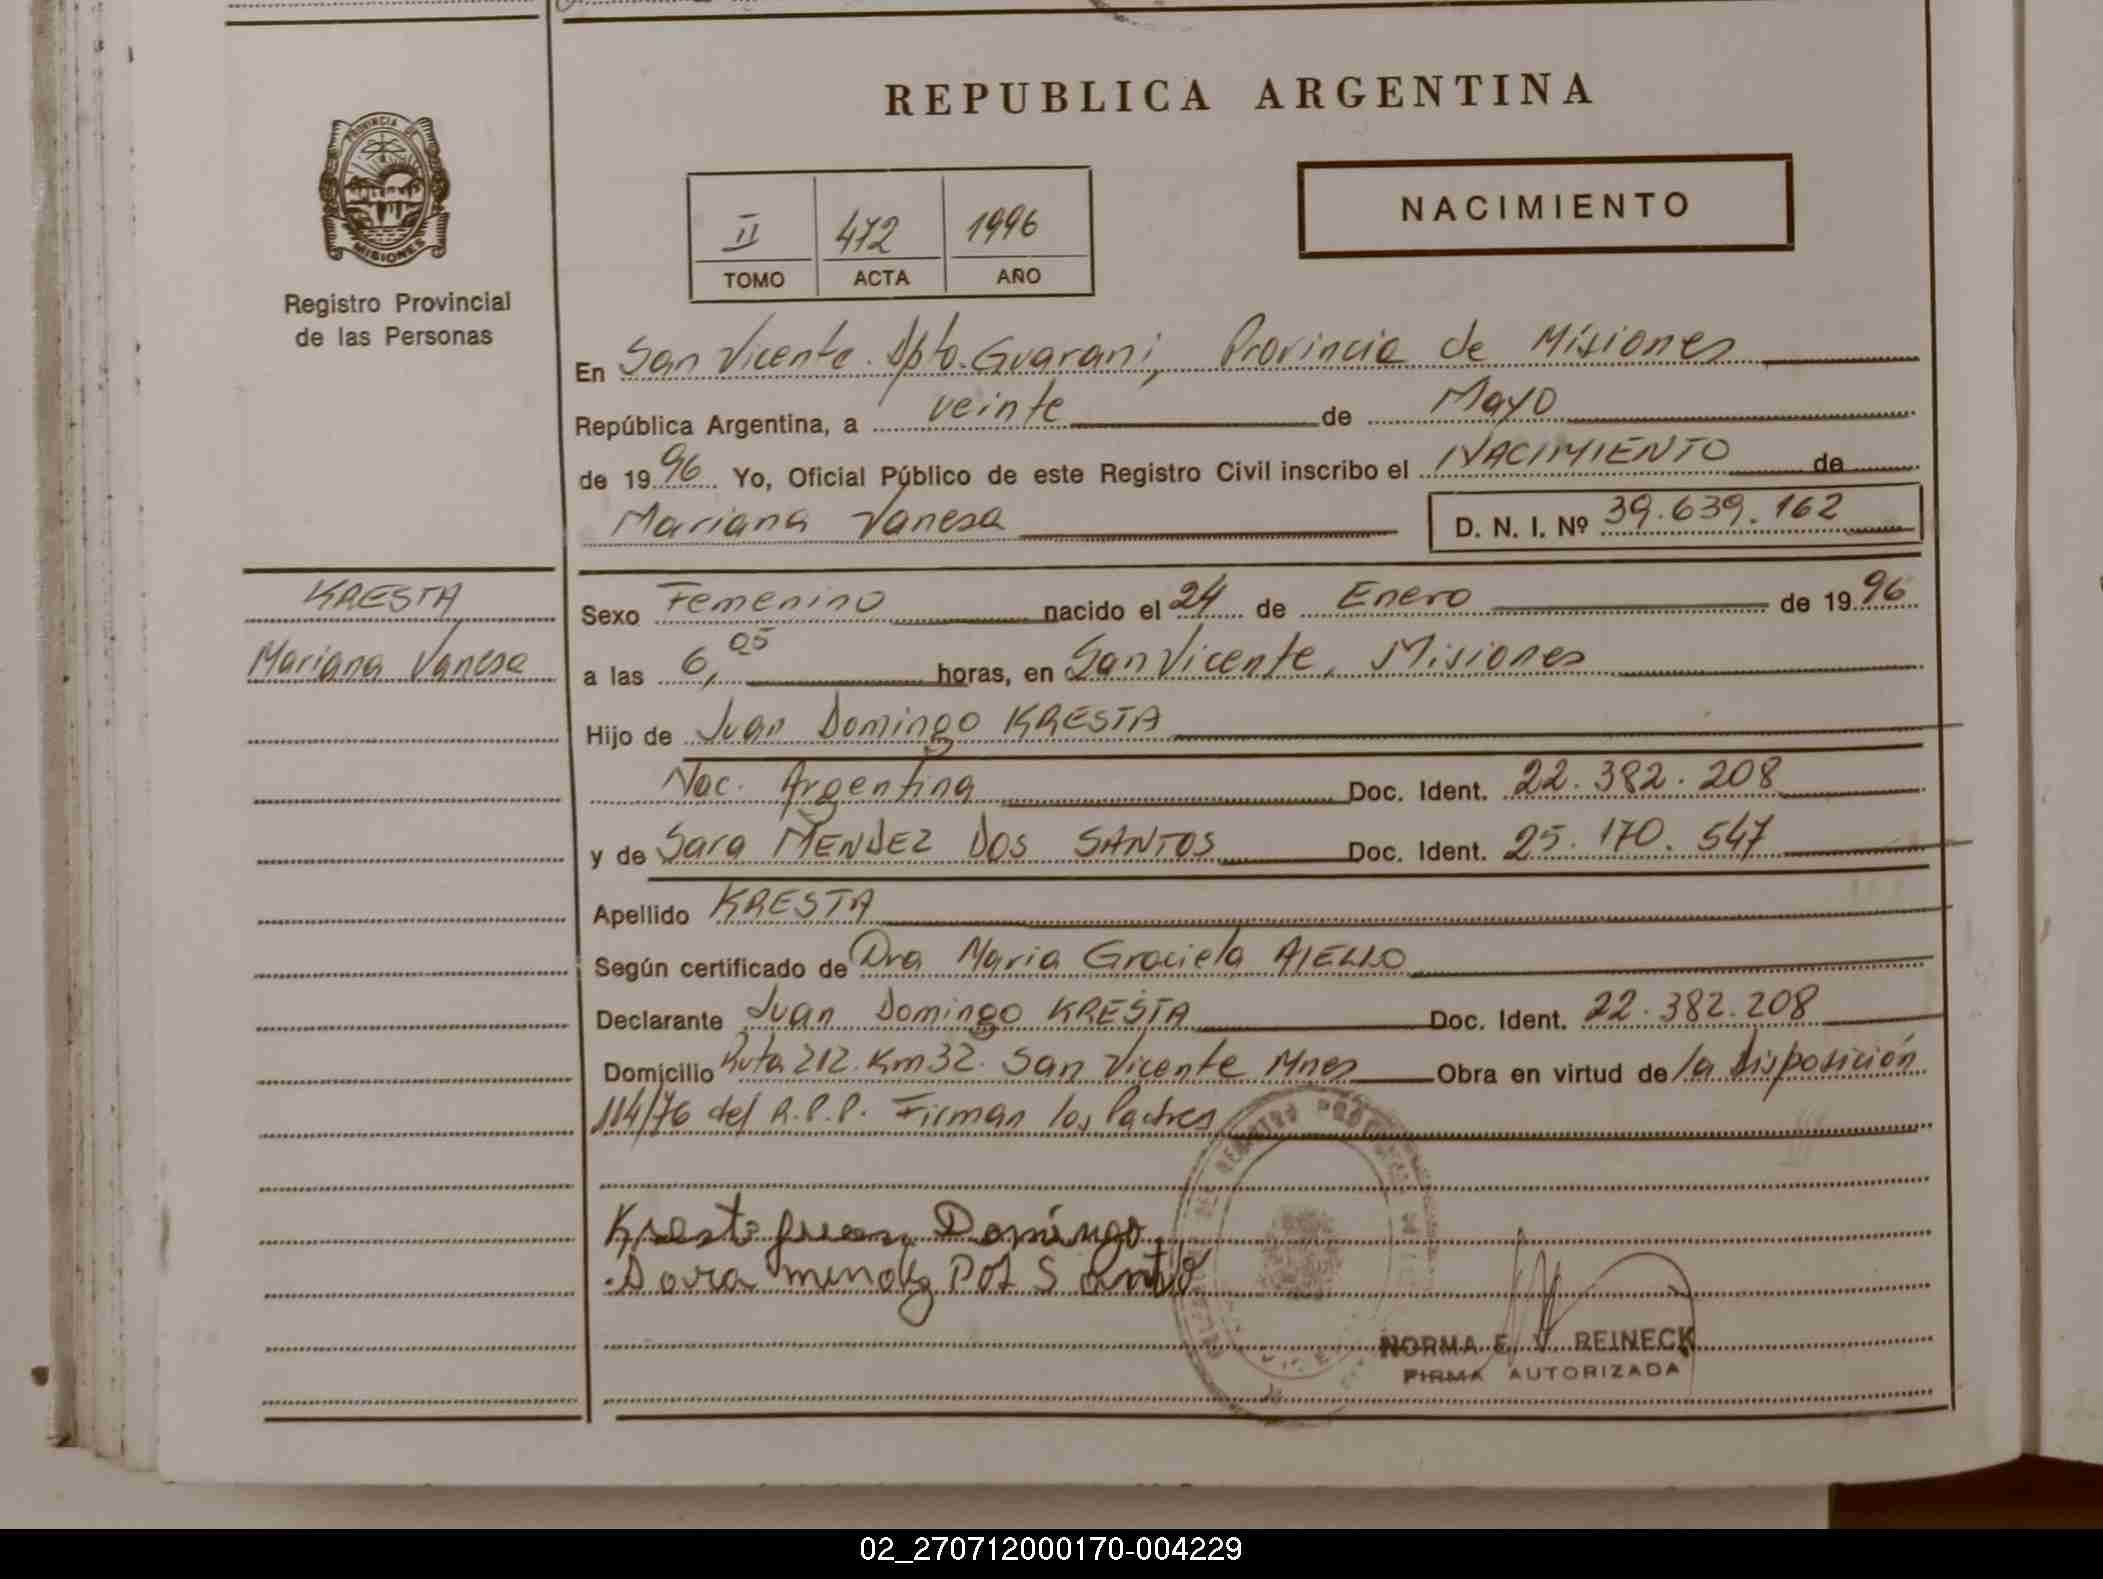 REPUBLICA ARGENTINA
PROVINCIA DE
MISIONES
Registro Provincial
de las Personas
II 472 1996
TOMO ACTA AÑO
NACIMIENTO
En San Vicente. Dpto. Guarani, Provincia de Misiones
República Argentina, a veinte de Mayo
de 1996 Yo, Oficial Público de este Registro Civil inscribo el NACIMIENTO de
Mariana Vanesa D. N. I. Nº 39.639.162
KRESTA
Mariana Vanesa
Sexo Femenino nacido el 24 de Enero de 1996
a las 6,05 horas, en San Vicente, Misiones
Hijo de Juan Domingo KRESTA
Nac. Argentina Doc. Ident. 22.382.208
y de Sara MENDEZ DOS SANTOS Doc. Ident. 25.170.547
Apellido KRESTA
Según certificado de Dra Maria Graciela AIELLO
Declarante Juan Domingo KRESTA Doc. Ident. 22.382.208
Domicilio Ruta 212. Km 32. San Vicente Mnes Obra en virtud de la Disposición
114/76 del R.P.P. Firman los Padres
Kresta Juan Domingo
Sara mendez Dos Santos
NORMA E. V. REINECK
FIRMA AUTORIZADA
02_270712000170-004229